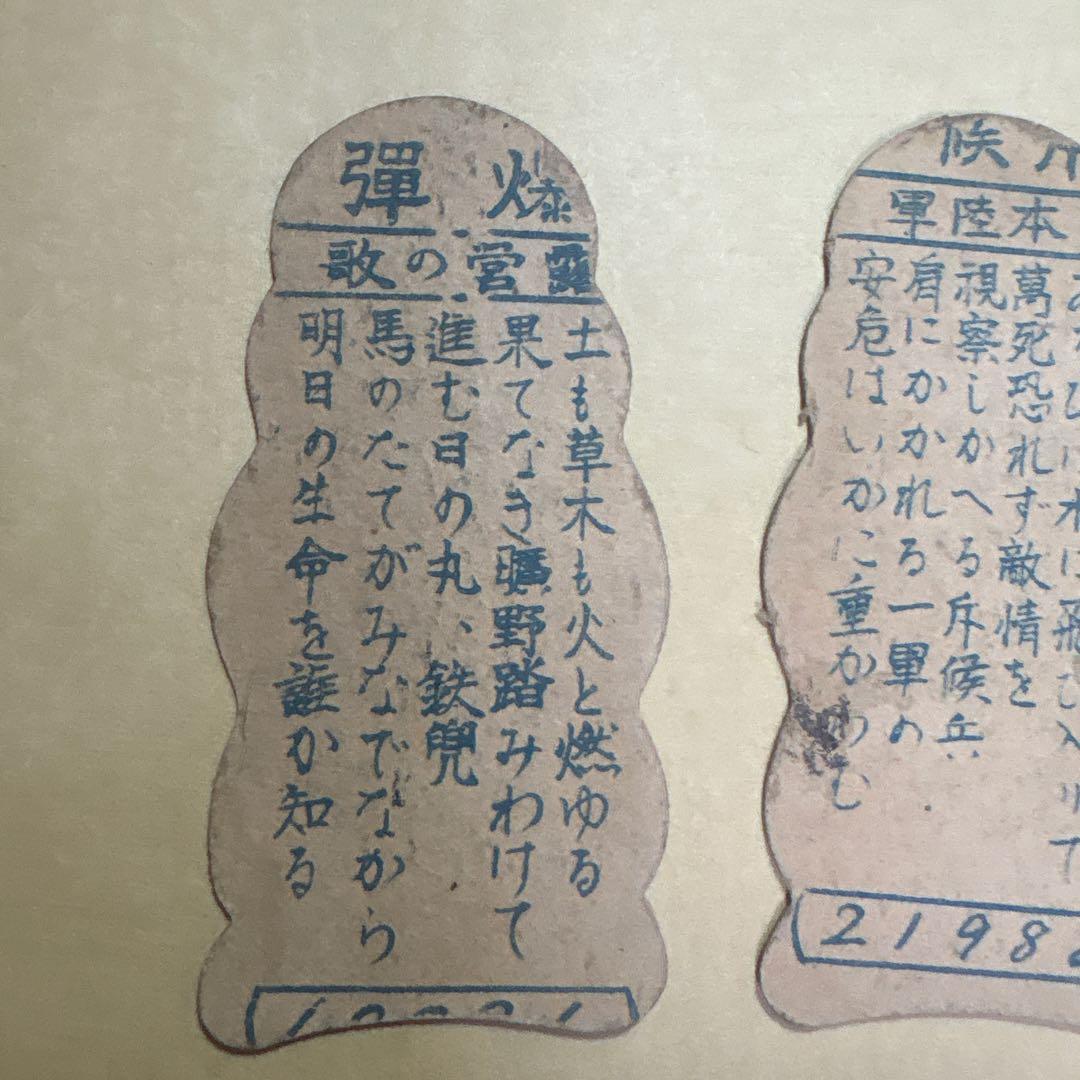 爆彈
露営の歌
土も草木も火と燃ゆる
果てなき曠野踏みわけて
進む日の丸、鉄兜
馬のたてがみなでなから
明日の生命を誰か知る
候
本陸軍
萬死恐れず敵情を
視察しかへる斥候兵
肩にかかれる一軍の
安危はいかに重か
2198